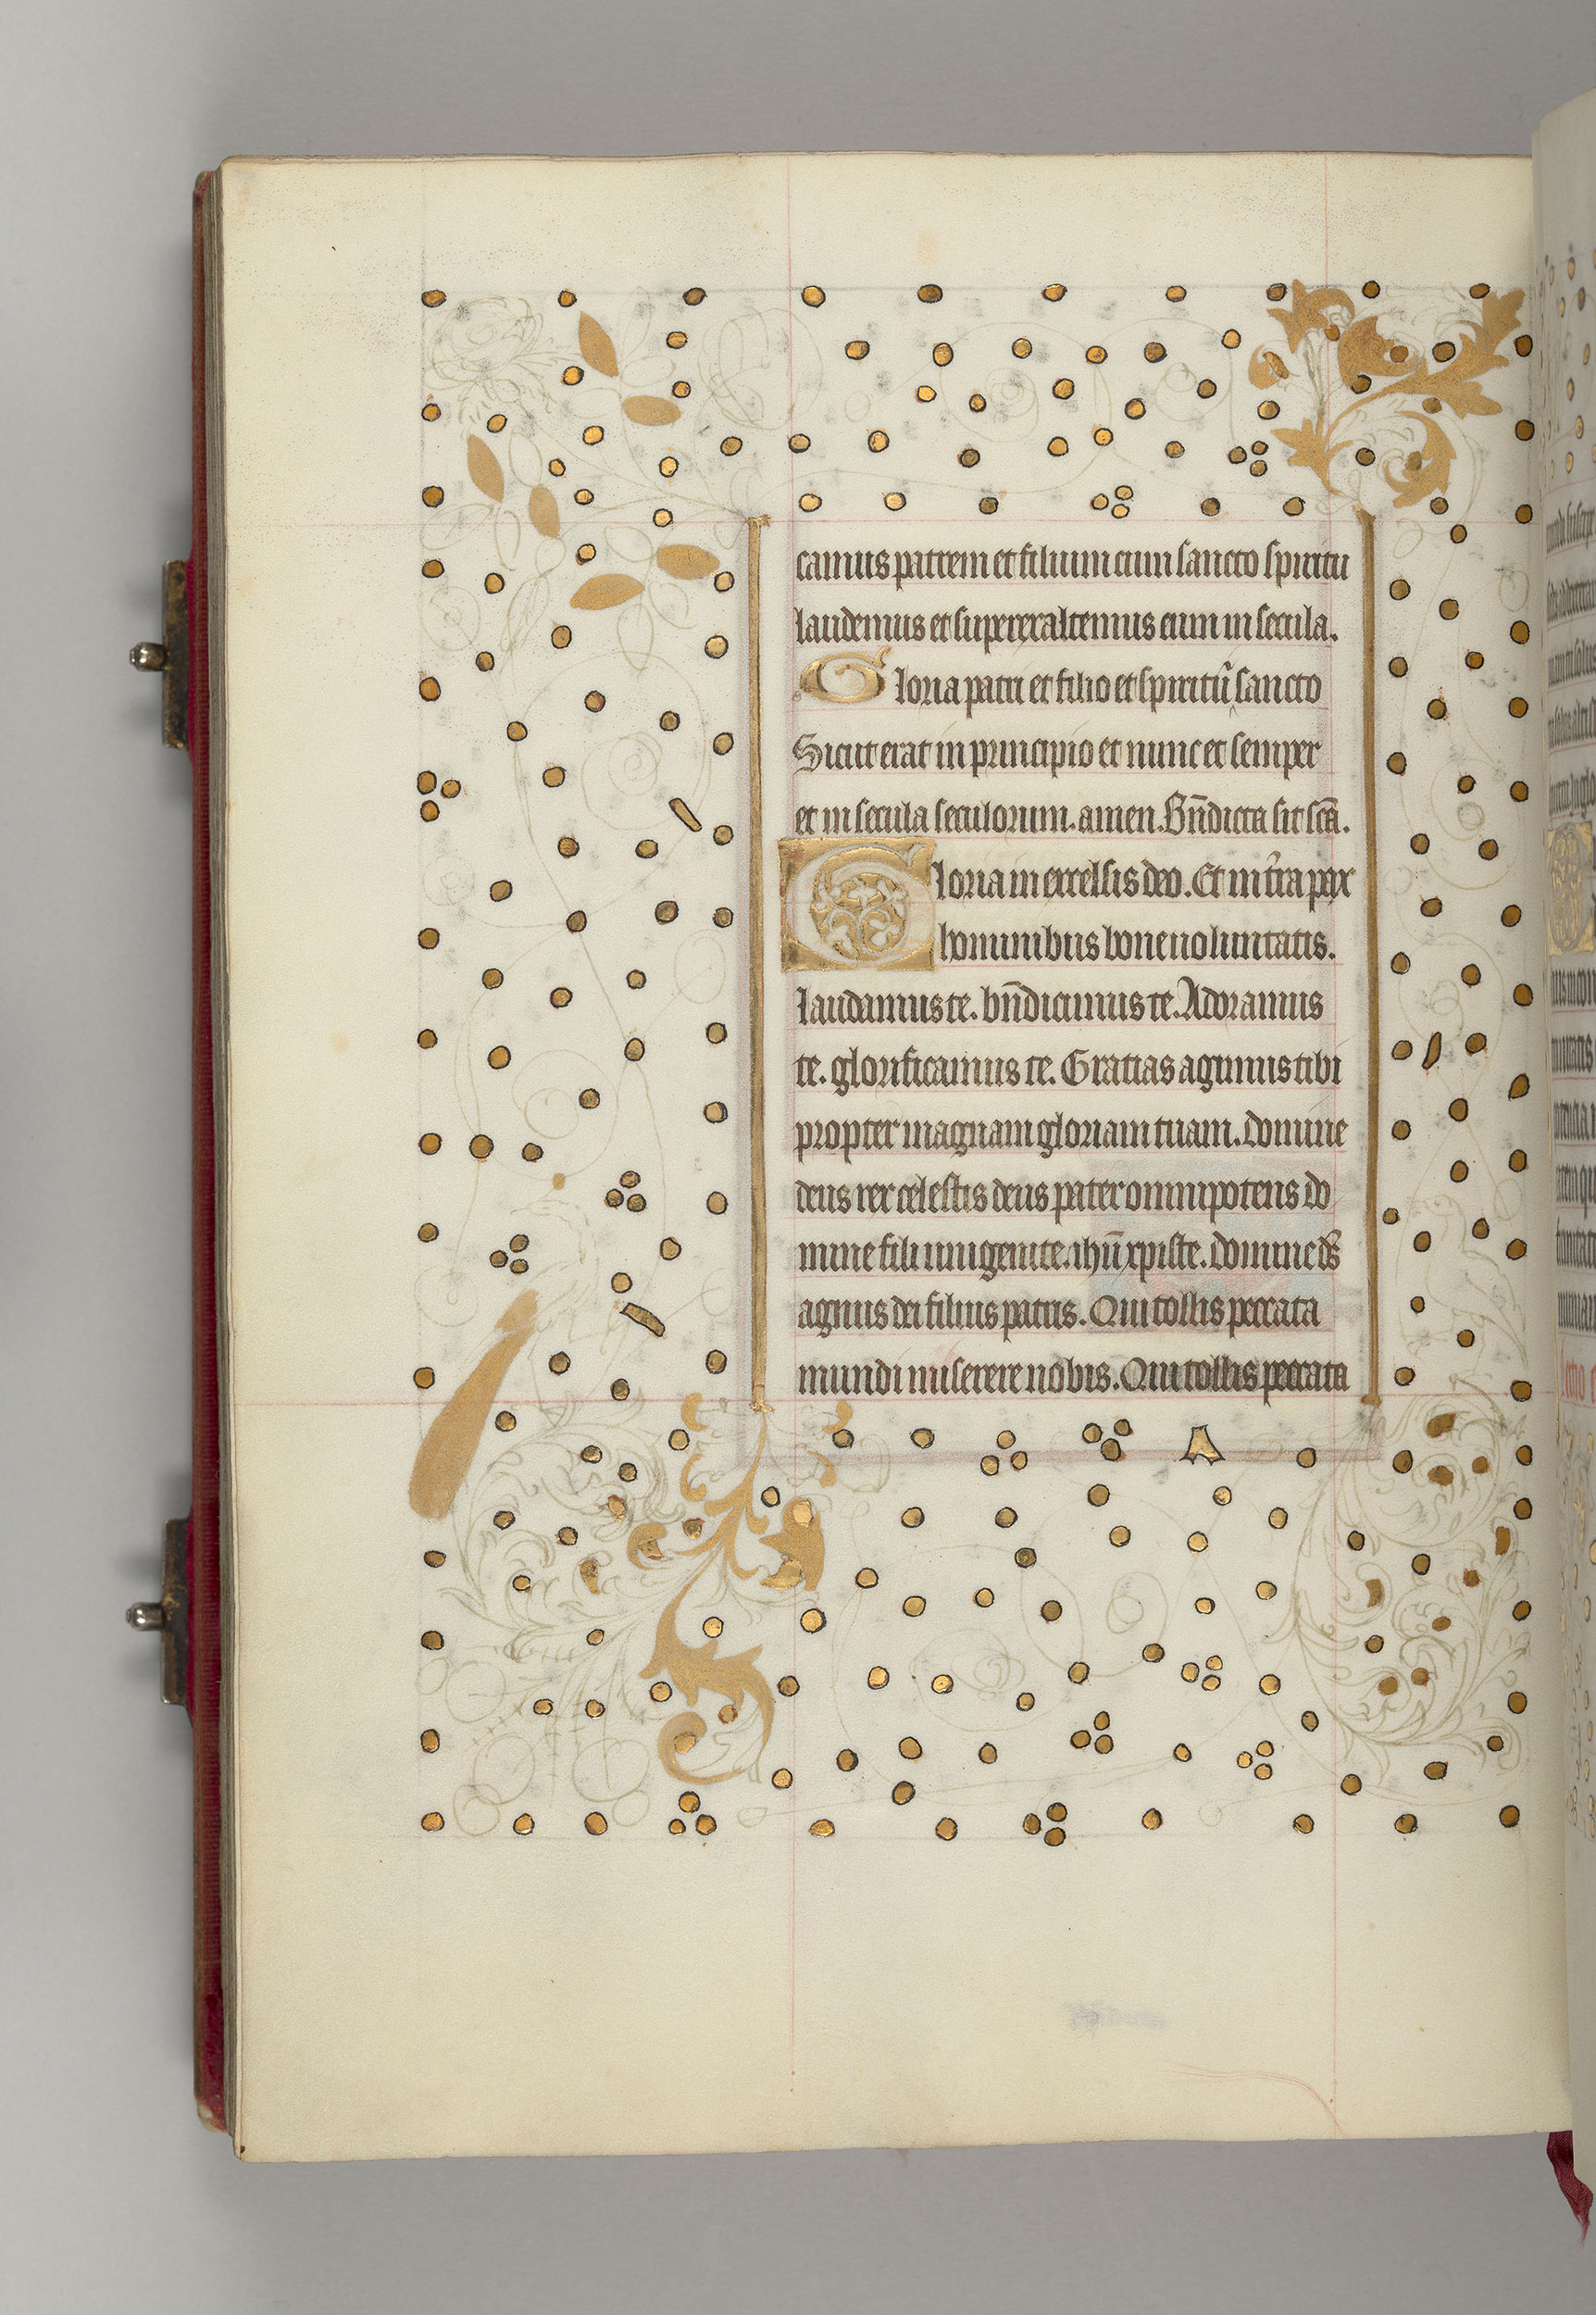 camus patrem et filium cum sancto spiritu
laudemus et superexaltemus eum in secula.
Gloria patri et filio et spiritũ sancto
Sicut erat in principio et nunc et semper
et in secula seculorum. amen. Bñdicta sit scã.
Gloria in excelsis deo. Et in tr̃a pax
hominibus bone uoluntatis.
laudamus te. bñdicimus te. Adoramus
te. glorificamus te. Gratias agimus tibi
propter magnam gloriam tuam. domine
deus rex celestis deus pater omnipotens do
mine fili unigenite. ihũ xpiste. domine ds̃
agnus dei filius patris. Qui tollis peccata
mundi miserere nobis. Qui tollis peccata